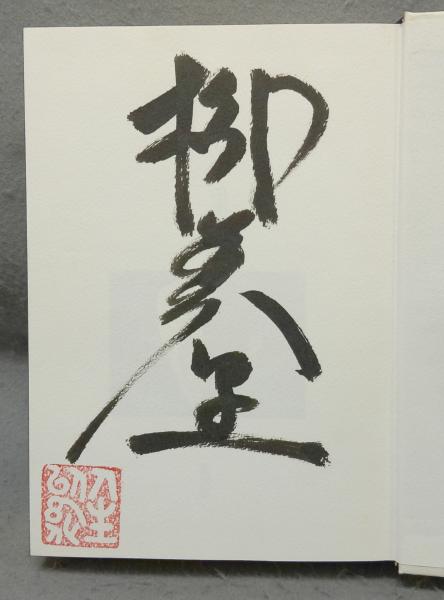 柳美里